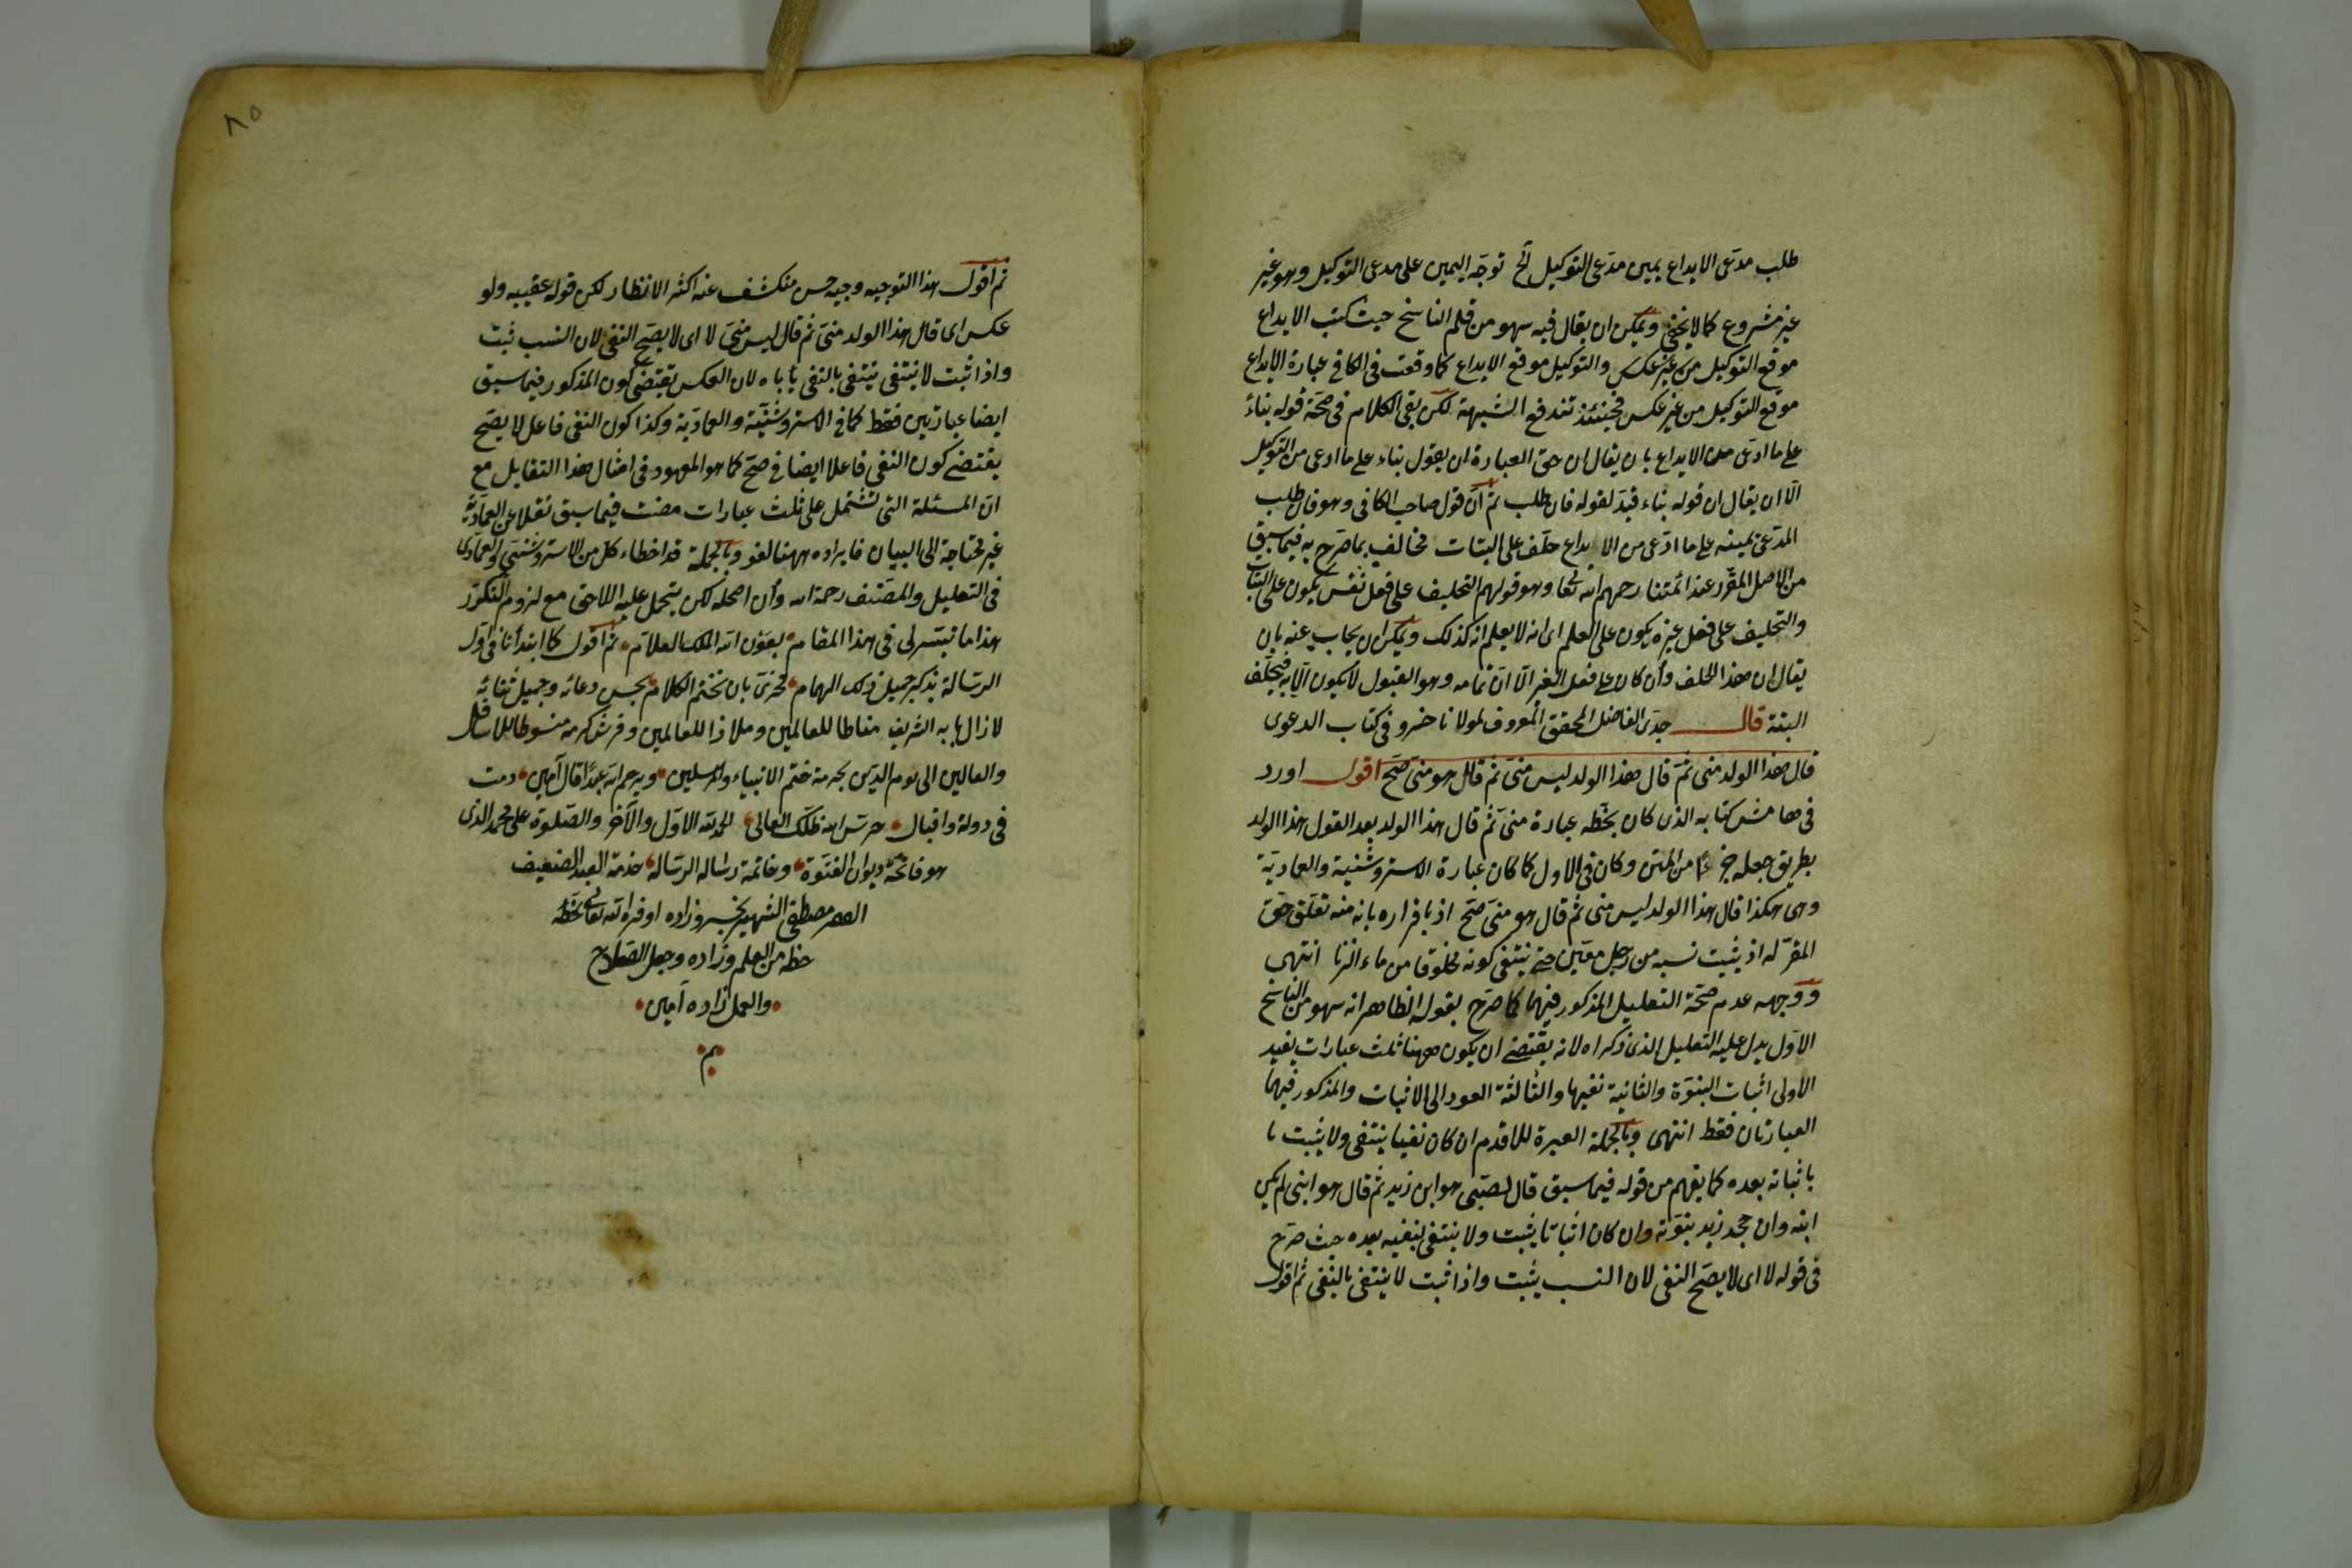 طلب مدعى الايداع يمين مدعى التوكيل الخ توجه اليمين على مدعى التوكيل وهو غير
غير مشروع كما لا يخفى ويمكن ان يقال فيه سهو من قلم الناسخ حيث كتب الايداع
موقع التوكيل من غير عكس والتوكيل موقع الايداع كما وقعت فى الكافى عبارة الايداع
موقع التوكيل من غير عكس فحينئذ تندفع الشبهة لكن بقى الكلام فى صحة قوله بناء
على ما ادعى من الايداع بان يقال ان حق العبارة ان يقول بناء على ما ادعى من التوكيل
الا ان يقال ان قوله بناء قيد لقوله فان طلب ثم ان قول صاحب الكافى وهو فان طلب
المدعى يمينه على ما ادعى من الايداع حلف على البتات مخالف بما صرح به فيما سبق
من الاصل المقرر عند ائمتنا رحمهم الله تعا وهو قولهم التحليف على فعل نفس يكون على البتات
والتحليف على فعل غيره يكون على العلم اى انه لا يعلم انه كذلك ويمكن ان يجاب عنه بان
يقال ان هذا الحلف وأن كان على فعل الغير الا ان تمامه وهو القبول لا يكون الا به فيحلف
البتة قال جدى الفاضل المحقق المعروف لمولانا خسرو فى كتاب الدعوى
قال هذا الولد منى ثم قال هذا الولد ليس منى ثم قال هو منى صح اقول اورد
فى هامش كتابه الذى كان بخطه عبارة منى ثم قال هذا الولد بعد القول هذا الولد
بطريق جعله جزءا من المتن وكان فى الاول كما كان عبارة الاستروشنية والعمادية
وهى هكذا قال هذا الولد ليس منى ثم قال هو منى صح اذ باقراره بانه منه تعلق حق
المقر له اذ يثبت نسبه من رجل معين حتى ينتفى كونه مخلوقا من ماء الزنا انتهى
ووجهه عدم صحة التعليل المذكور فيهما كما صرح بقوله الظاهر انه سهو من الناسخ
الاول يدل عليه التعليل الذى ذكراه لانه يقتضى ان يكون ههنا ثلث عبارات يفيد
الاولى اثبات البنوة والثانية نفيها والثالثة العود الى الاثبات والمذكور فيهما
العبارتان فقط انتهى وبالجملة العبرة للاقدم ان كان نفيا ينتفى ولا يثبت با
باثباته بعده كما يفهم من قوله فيما سبق قال لصبى هو ابن زيد ثم قال هو ابنى لم يكن
ابنه وان جحد زيد بنوته وان كان اثباتا يثبت ولا ينتفى بنفيه بعده حيث صرح
فى قوله لا اى لا يصح النفى لان النسب يثبت واذا ثبت لا ينتفى بالنفى ثم اقول
٨٥
ثم اقول هذا التوجيه وجيه حسن منكشف عنه اكثر الانظار لكن قوله عقيبه ولو
عكس اى قال هذا الولد منى ثم قال ليس منى لا اى لا يصح النفى لان النسب ثبت
واذا ثبت لا ينتفى ينتفى بالنفى يأباه لان العكس تقتضى كون المذكور فيما سبق
ايضا عبارتين فقط كما فى الاستروشنية والعمادية وكذا كون النفى فاعل لا يصح
يقتضى كون النفى فاعلا ايضا فى صح كما هو المعهود فى امثال هذا التقابل مع
ان المسئلة التى تشتمل على ثلث عبارات مضت فيما سبق نقلا عن العمادية
غير محتاجة الى البيان فايراده ههنا لغو وبالجملة قد اخطاء كل من الاستروشنى والعمادى
فى التعليل والمصنف رحمة الله وأن اصلحه لكن يتحمل عليه اللاحق مع لزوم التكرر
هذا ما تيسر لى فى هذا المقام بعون الله الملك العلام ثم اقول كما ابتدأنا فى اول
الرسالة بذكر جميل ذلك الهمام فحرى بان نختم الكلام بحسن دعائه وجميل ثنائه
لا زال بابه الشريف مناطا للعالمين وملاذا للعالمين وفرش كرمه مبسوطا للاسافل
والعالين الى يوم الدين بحرمة ختم الانبياء والمرسلين ويرحم الله عبدا قال آمين دمت
فى دولة واقبال حرس الله ظلك العالى الحمد لله الاول والآخر والصلوة على محمد الذى
هو فاتحة ديوان الفتوة وخاتمة رساله الرسالة خدمة العبد الضعيف
مصطفى الشهير بخسروزاده اوفر الله تعالى بخطه
حظه من العلم وزاده وجعل الصلاح
والعمل زاده آمين
تم